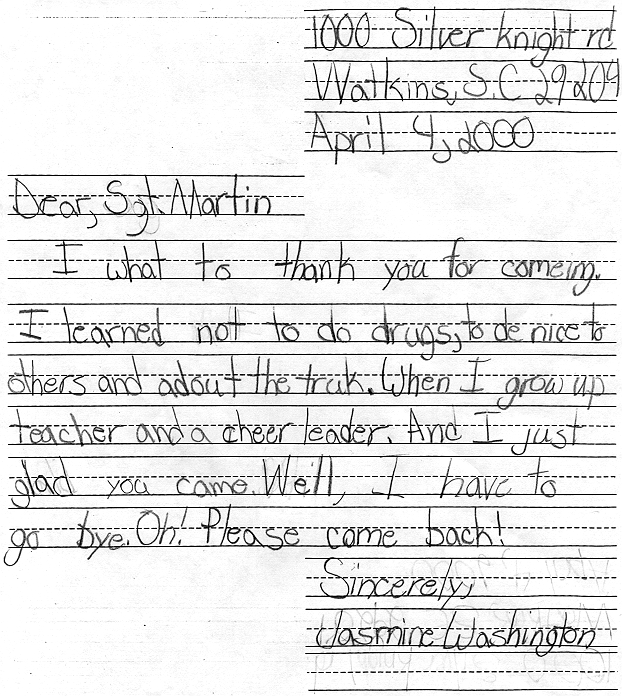 1000 Silver knight rd
Watkins, S.C 29204
April 4, 2000
Dear, Sgt. Martin
I what to thank you for comeing.
I learned not to do drugs, to de nice to
others and adout the truk. When I grow up
teacher and a cheer leader. And I just
glad you came. We'll, I have to
go bye. Oh! Please come back!
Sincerely,
Jasmine Washington